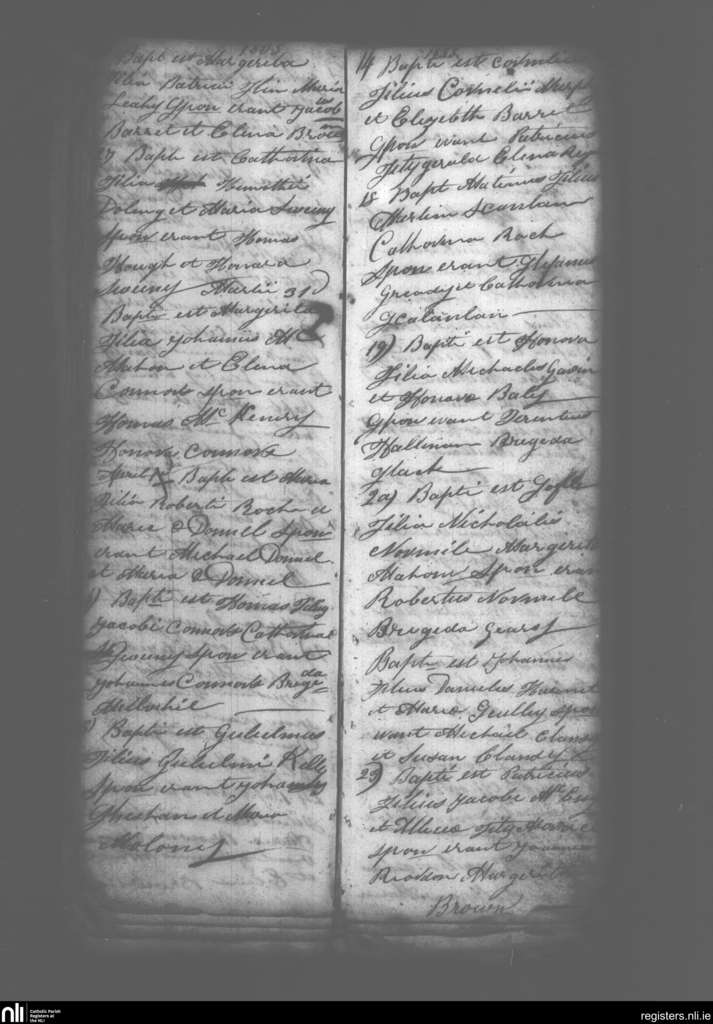 1805
Bapt est Margerita
Filia Patricii Flin Maria
Leahy Spon erant Jacob us
Barret et Elena Brown
7 Baph est Catharina
Filia Timothii
Dolmy et Maria Sweiny
Spon erant Thomas
Hough et Honara
Sweiny Martii 31
Bapti est Margerita
Filia Johannis Mc
Mahon et Elena
Connors Spon erant
Thomas Mc Kenery
Honora Connors
April Baph est Maria
Filia Roberti Roche et
Maria O Donnel Spon
erant Michael Donnel
et Maria O Donnel
Bapti est Thomas Filius
Jacobi Connors Catharinae
Sweeny Spon erant
Johannes Connors Brege da
Bapti est Gulielmus
Filius Gulielmi Kelly
Spon erant Johannes
Sheehan et Mary
Molony
14 Bapti est Cornelius
Filius Cornelii Murphy
et Elezebeth Barret
Spon erant Patricius
Fitzgerald Elena
18 Bapt Matinus Filius
Martin Scanlan
Catharina Roch
Spon erant Stefanus
Gready et Catharina
Scalanlan
19) Bapti est Honora
Filia Michaelis Gavin
et Honara Baly
Spon erant Terentius
Hallinan Bregeda
Slack
20) Bapti est
Filia Nicholailis
Normile Margerita
Mahony Spon eran
Robertus Normile
Bregeda Geary
Bapti est Johannis
Filius Danielus
et Maria Geulley Spon
erant Michael
et Susan
23) Bapti est Patricius
Filius Jacobi Mc
et Alicia Fitz
Spon erant Johannes
Reordon Margerita
Brown
nli
Catholic Parish
Registers at
the NLI
registers.nli.ie